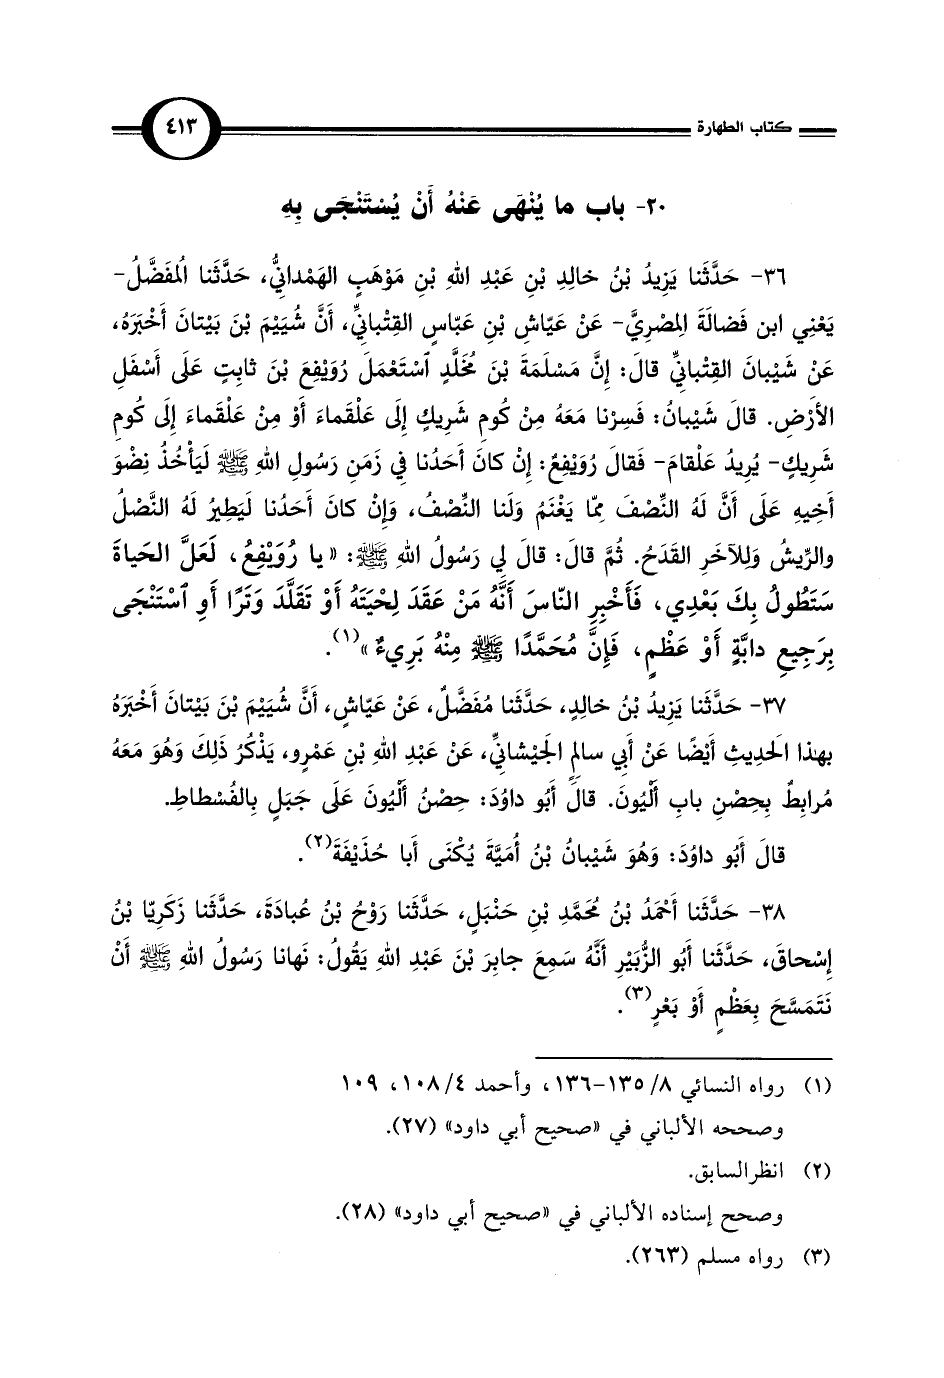 كتاب الطهارة ٤١٣
٢٠- باب ما يُنْهَى عَنْهُ أَنْ يُسْتَنْجَى بِهِ
٣٦- حَدَّثَنا يَزِيدُ بْنُ خالِدِ بْنِ عَبْدِ اللهِ بْنِ مَوْهَبٍ الهَمْدانيُّ، حَدَّثَنا المُفَضَّلُ-
يَعْنِي ابن فَضالَةَ المِصْرِيَّ- عَنْ عَيّاشِ بْنِ عَبّاسٍ القِتْبانيِّ، أَنَّ شُيَيْمَ بْنَ بَيْتانَ أَخْبَرَهُ،
عَنْ شَيْبانَ القِتْبانيِّ قالَ: إِنَّ مَسْلَمَةَ بْنَ مُخَلَّدٍ ٱسْتَعْمَلَ رُوَيْفِعَ بْنَ ثابِتٍ عَلَى أَسْفَلِ
الأَرْضِ. قالَ شَيْبانُ: فَسِرْنا مَعَهُ مِنْ كُومِ شَرِيكٍ إِلَى عَلْقَماءَ أَوْ مِنْ عَلْقَماءَ إِلَى كُومِ
شَرِيكٍ- يُرِيدُ عَلْقامَ- فَقالَ رُوَيْفِعٌ: إِنْ كانَ أَحَدُنا فِي زَمَنِ رَسُولِ اللهِ ﷺ لَيَأْخُذُ نِضْوَ
أَخِيهِ عَلَى أَنَّ لَهُ النِّصْفَ مِمّا يَغْنَمُ وَلَنا النِّصْفُ، وَإِنْ كانَ أَحَدُنا لَيَطِيرُ لَهُ النَّصْلُ
والرِّيشُ وَلِلآخَرِ القَدَحُ. ثُمَّ قالَ: قالَ لِي رَسُولُ اللهِ ﷺ: «يا رُوَيْفِعُ، لَعَلَّ الحَياةَ
سَتَطُولُ بِكَ بَعْدِي، فَأَخْبِرِ النّاسَ أَنَّهُ مَنْ عَقَدَ لِحْيَتَهُ أَوْ تَقَلَّدَ وَتَرًا أَوِ ٱسْتَنْجَى
بِرَجِيعِ دابَّةٍ أَوْ عَظْمٍ، فَإِنَّ مُحَمَّدًا ﷺ مِنْهُ بَرِيءٌ»(١).
٣٧- حَدَّثَنا يَزِيدُ بْنُ خالِدٍ، حَدَّثَنا مُفَضَّلٌ، عَنْ عَيّاشٍ، أَنَّ شُيَيْمَ بْنَ بَيْتانَ أَخْبَرَهُ
بهذا الحَدِيثِ أَيْضًا عَنْ أَبي سالِمٍ الجَيْشانيِّ، عَنْ عَبْدِ اللهِ بْنِ عَمْرٍو، يَذْكُرُ ذَلِكَ وَهُوَ مَعَهُ
مُرابِطٌ بِحِصْنِ بابِ أَلْيُونَ. قالَ أَبُو داوُدَ: حِصْنُ أَلْيُونَ عَلَى جَبَلٍ بِالفُسْطاطِ.
قالَ أَبُو داوُدَ: وَهُوَ شَيْبانُ بْنُ أُمَيَّةَ يُكْنَى أَبا حُذَيْفَةَ(٢).
٣٨- حَدَّثَنا أَحْمَدُ بْنُ مُحَمَّدِ بْنِ حَنْبَلٍ، حَدَّثَنا رَوْحُ بْنُ عُبادَةَ، حَدَّثَنا زَكَرِيّا بْنُ
إِسْحاقَ، حَدَّثَنا أَبُو الزُّبَيْرِ أَنَّهُ سَمِعَ جابِرَ بْنَ عَبْدِ اللهِ يَقُولُ: نَهانا رَسُولُ اللهِ ﷺ أَنْ
نَتَمَسَّحَ بِعَظْمٍ أَوْ بَعْرٍ(٣).
(١) رواه النسائي ٨/ ١٣٥-١٣٦، وأحمد ٤/ ١٠٨، ١٠٩
وصححه الألباني في «صحيح أبي داود» (٢٧).
(٢) انظر السابق.
وصحح إسناده الألباني في «صحيح أبي داود» (٢٨).
(٣) رواه مسلم (٢٦٣).